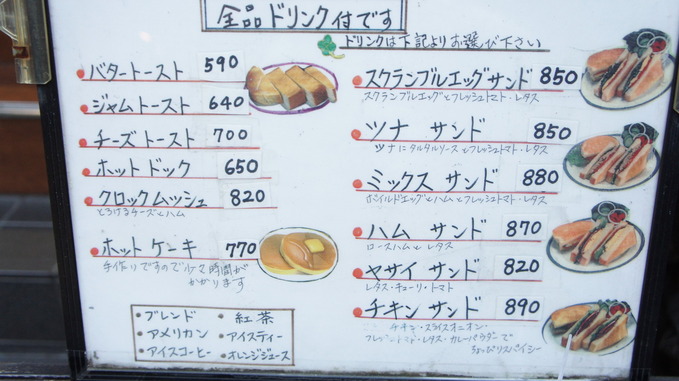 全品ドリンク付です
ドリンクは下記よりお選び下さい
バタートースト 590
ジャムトースト 640
チーズトースト 700
ホットドック 650
クロックムッシュ 820
とろけるチーズとハム
ホットケーキ 770
手作りですので少々時間が
かかります
・ブレンド ・紅茶
・アメリカン ・アイスティー
・アイスコーヒー ・オレンジジュース
スクランブルエッグサンド 850
スクランブルエッグとフレッシュトマト・レタス
ツナ サンド 850
ツナにタルタルソースとフレッシュトマト・レタス
ミックス サンド 880
ボイルドエッグとハムとフレッシュトマト・レタス
ハム サンド 870
ロースハムとレタス
ヤサイ サンド 820
レタス・キューリ・トマト
チキン サンド 890
チキン・スライスオニオン・
フレッシュトマト・レタス・カレーパウダーで
ちょっぴりスパイシー